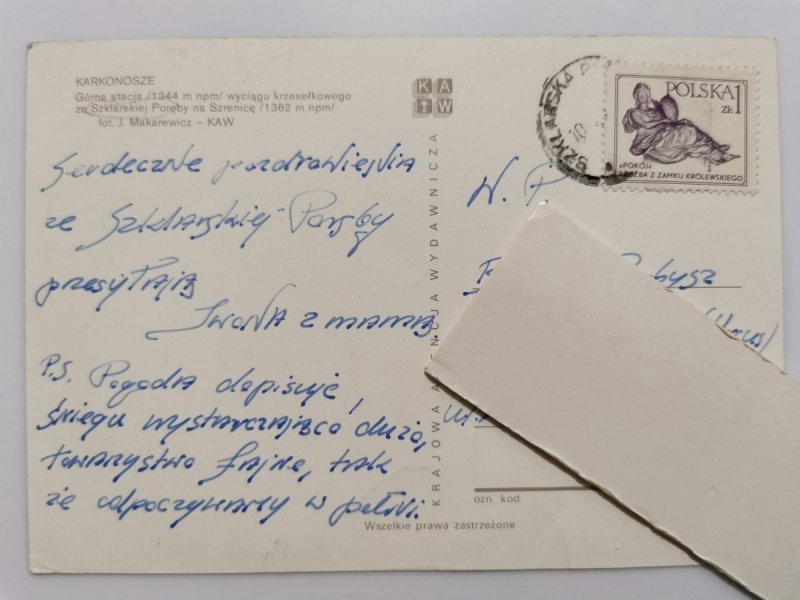 KARKONOSZE
Górna stacja /1344 m npm/ wyciągu krzesełkowego
ze Szklarskiej Poręby na Szrenicę /1362 m npm/
fot. J. Makarewicz – KAW
KAW
Serdeczne pozdrowienia
ze Szklarskiej Poręby
przesyłają
Iwona z mamą.
P.S. Pogoda dopisuje,
śniegu wystarczająco dużo,
towarzystwo fajne, tak
że odpoczywamy w pełni.
Wszelkie prawa zastrzeżone
KRAJOWA WYDAWNICZA
SZKLARSKA
POLSKA 1
ZŁ
»POKÓJ«
RZEŹBA Z ZAMKU KRÓLEWSKIEGO
W. P.
ul.
ozn. kod.